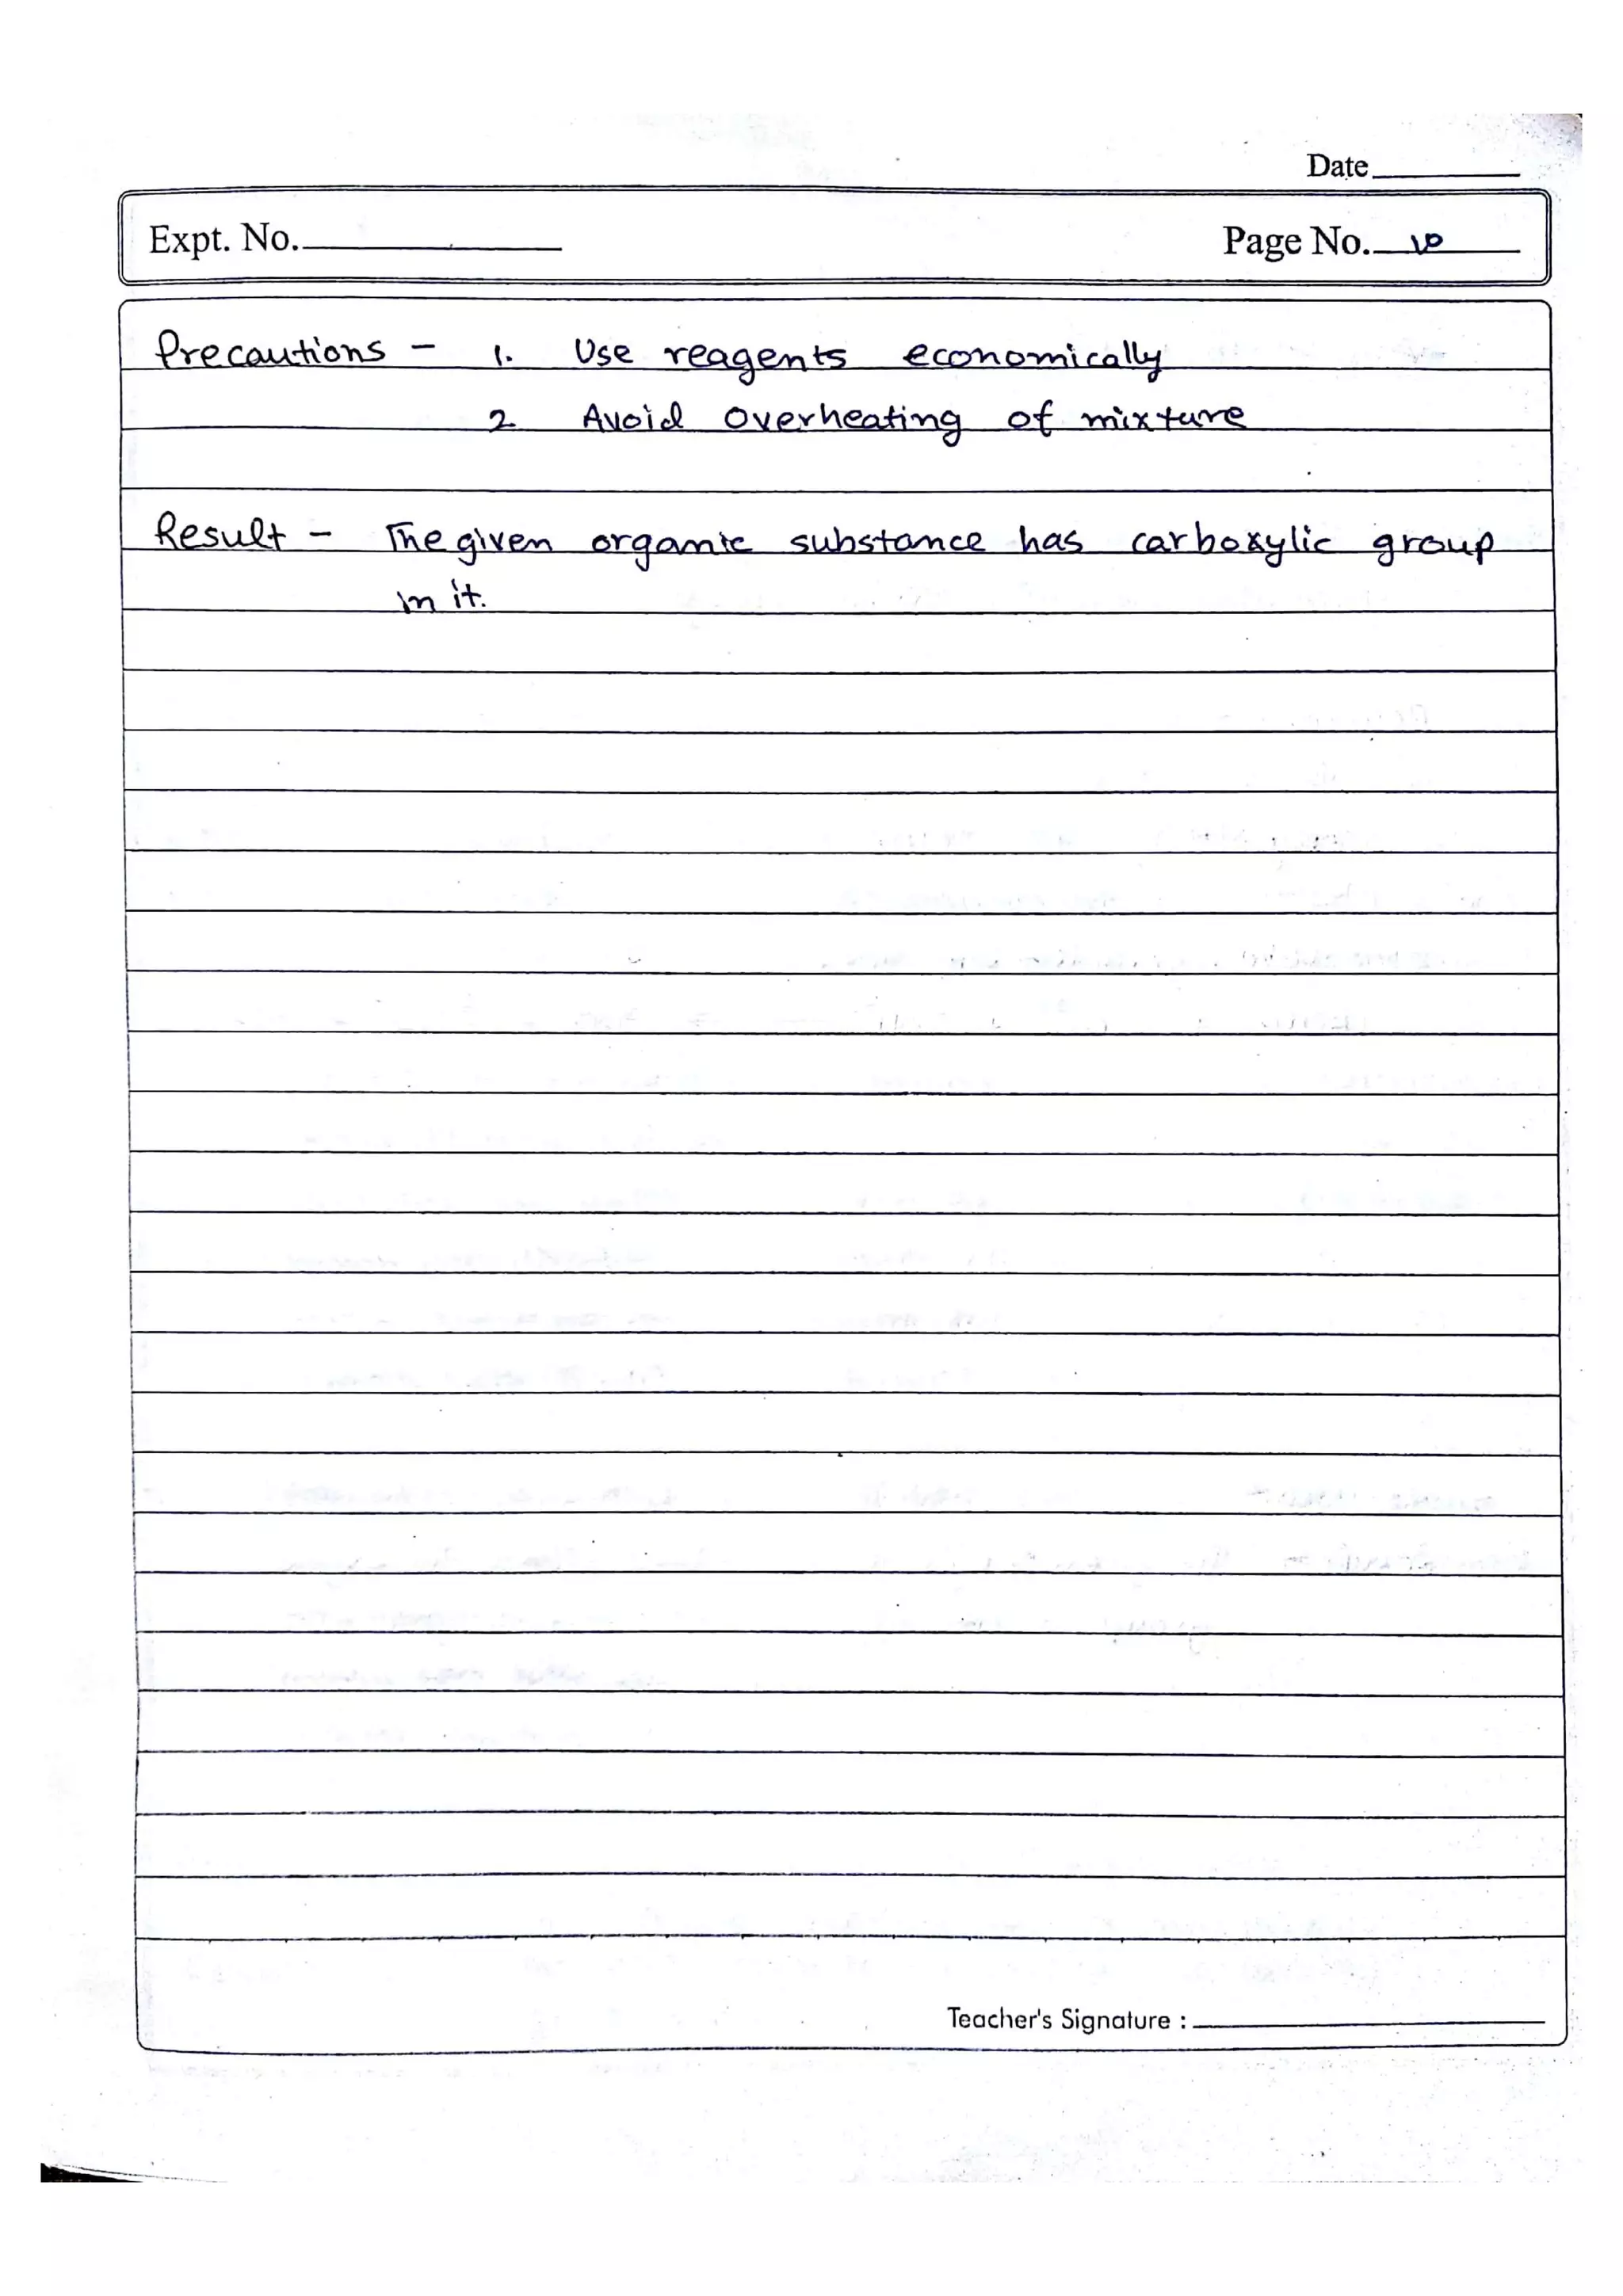 Date
Expt. No.
Page No. 10
Precautions - 1. Use reagents economically
2 Avoid overheating of mixture
Result - The given organic substance has carboxylic group
in it.
Teacher's Signature :